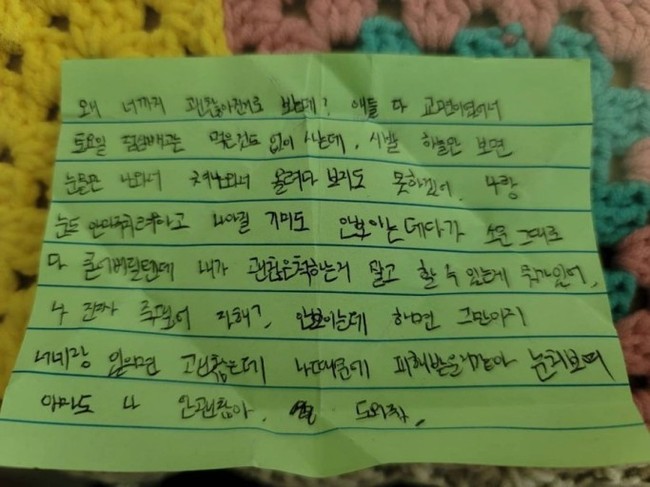 왜 너까지 괜찮아진거로 보는데? 애들 다 교묘하면서
토요일 점심빼고는 먹은것도 없이 사는데, 시발 하늘만 보면
눈물만 나와서 올려다 보지도 못하겠어. 나랑
눈도 안마주치려하고 나아질 기미도 안보이는데다가 소문 그대로
다 믿어버릴텐데 내가 괜찮은척하는거 말고 할 수 있는게 뭐가있어,
나 진짜 죽을거 지해?, 안보이는데 하면 그만이지
너네랑 있으면 괜찮은데 나때문에 피해받을거같아 눈치보여
아마도 나 안괜찮아. 도와줘.